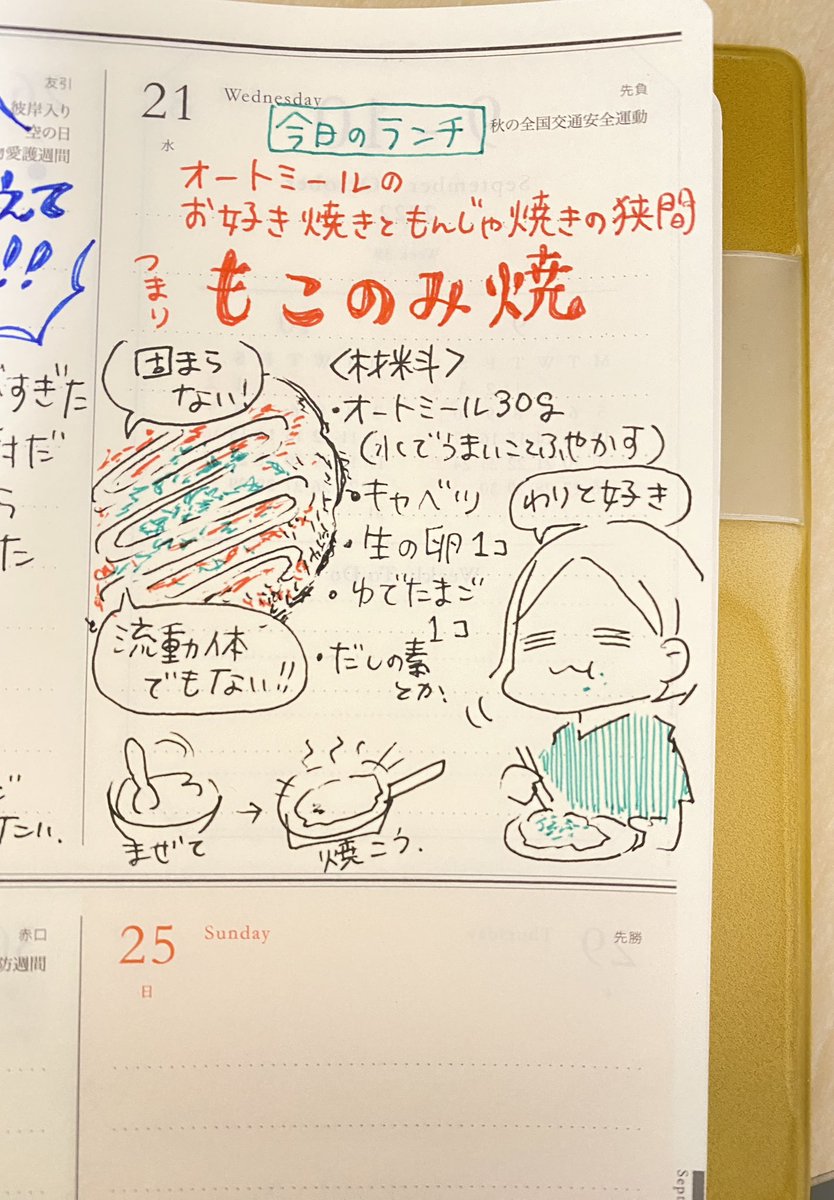 友引
彼岸入り
空の日
物愛護週間
えて
!!
すぎた
だ
ら
た
21
Wednesday
先負
水
秋の全国交通安全運動
今日のランチ
オートミールの
お好き焼きともんじゃ焼きの狭間
つまり
もこのみ焼
固まら
ない!
<材料>
・オートミール30g
(水でうまいことふやかす)
・キャベツ
・生の卵1コ
・ゆでたまご
1コ
・だしの素
とか、
わりと好き
流動体
でもない!!
まぜて
→
焼こう.
赤口
防週間
25
Sunday
先勝
日
Sept